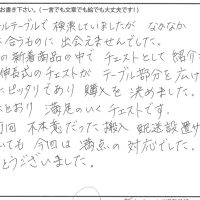 お書き下さい。(一言でも文章でも絵でも大丈夫です!)
ールテーブルで検索していましたが なかなか
合うものに出会えませんでした。
の新着商品の中で チェストとして紹介
伸長式のチェストが テーブル部分を広げ
ピッタリであり 購入を決めました。
とおり 満足のいくチェストです。
前回 不本意だった搬入 配送設置サ
いても 今回は 満点の対応でした。
とうございました。